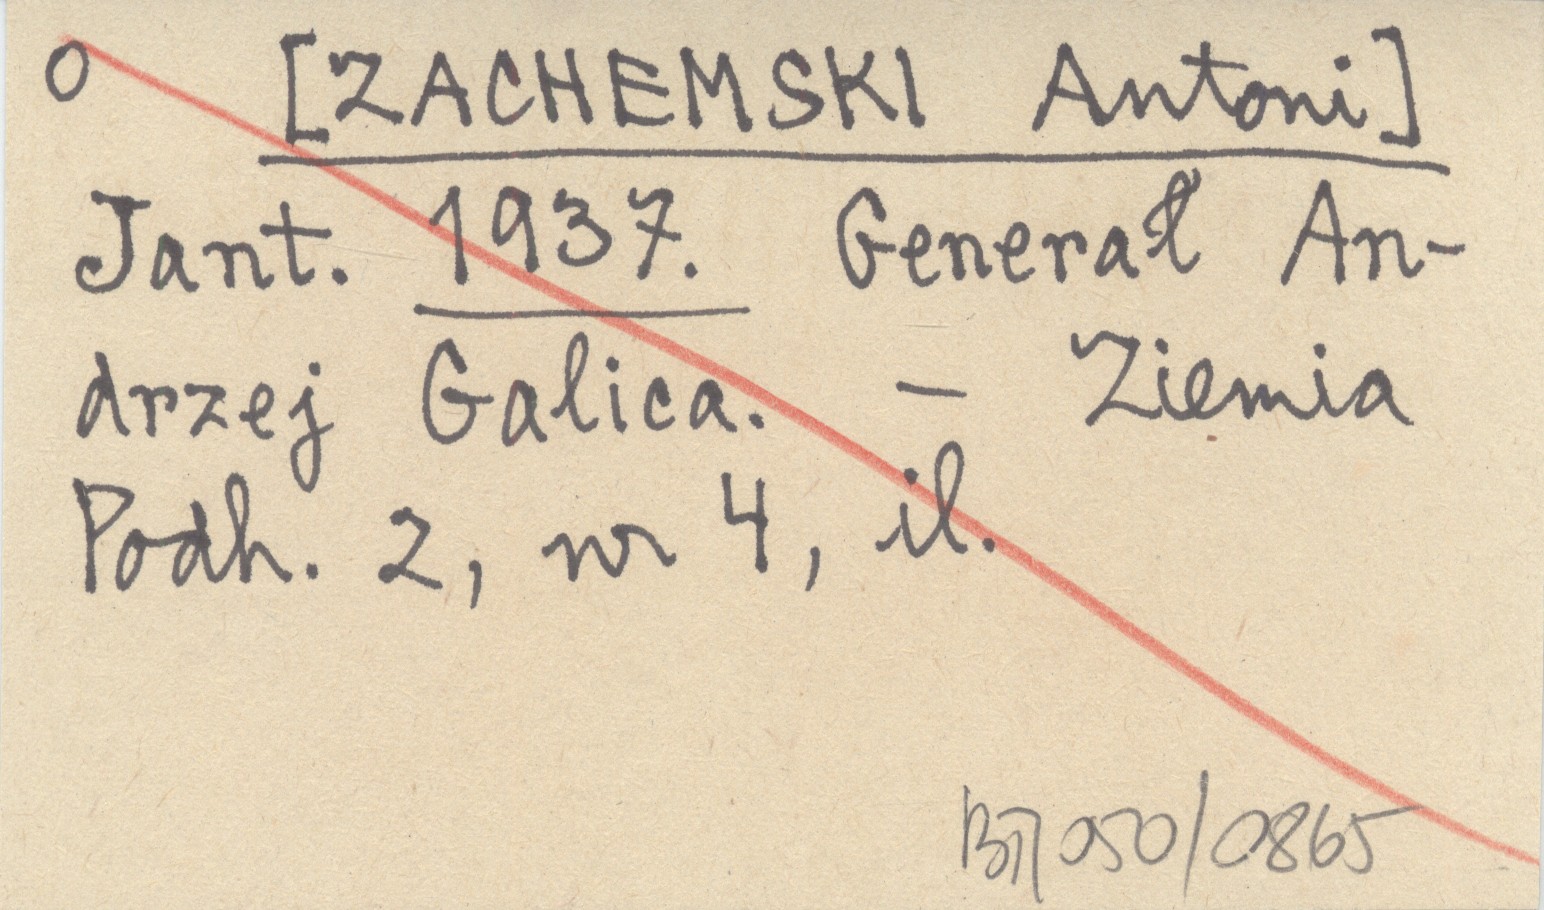 o [ZACHEMSKI Antoni]
Jant. 1937. Generał An-
drzej Galica. – Ziemia
Podh. 2, nr 4, il.
050/0865